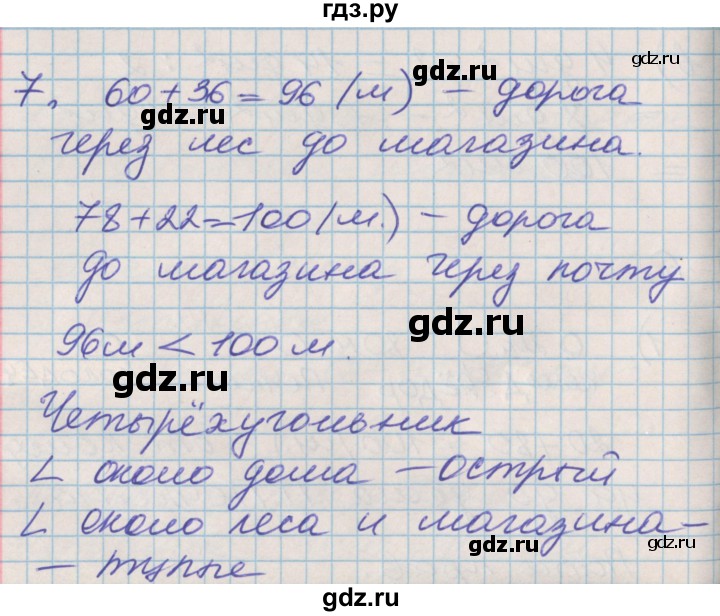 гдз.ру
gdz.ru
7. 60+36=96 (м) – дорога
через лес до магазина.
gdz.ru
gdz.ru
78+22=100(м.) – дорога
gdz.ru
до магазина через почту
gdz.ru
96м < 100 м.
gdz.ru
Четырёхугольник
∠ около дома – острый
gdz.ru
∠ около леса и магазина –
gdz.ru
gdz.ru
– тупые
gdz.ru